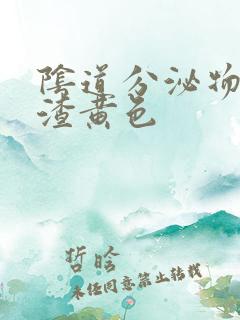 陰道分泌物
渣黄色
哲晗
未经同意禁止转载